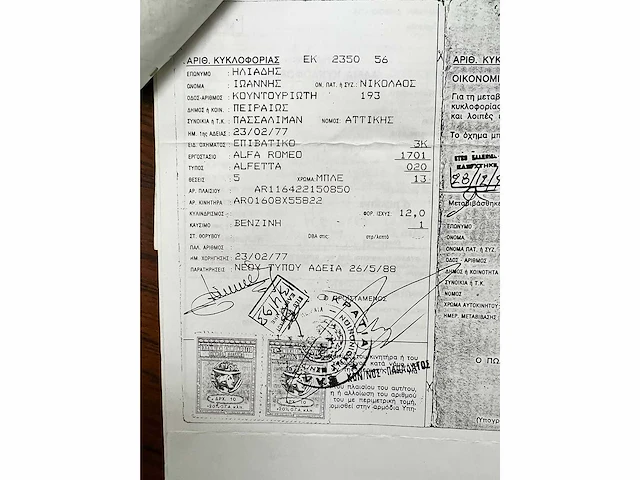 ΑΡΙΘ. ΚΥΚΛΟΦΟΡΙΑΣ ΕΚ 2350 56
ΕΠΩΝΥΜΟ : ΗΛΙΑΔΗΣ
ΟΝΟΜΑ : ΙΩΑΝΝΗΣ ΟΝ. ΠΑΤ. ή ΣΥΖ : ΝΙΚΟΛΑΟΣ
ΟΔΟΣ-ΑΡΙΘΜΟΣ : ΚΟΥΝΤΟΥΡΙΩΤΗ 193
ΔΗΜΟΣ ή ΚΟΙΝ. : ΠΕΙΡΑΙΩΣ
ΣΥΝΟΙΚΙΑ ή Τ.Κ. : ΠΑΣΣΑΛΙΜΑΝ ΝΟΜΟΣ: ΑΤΤΙΚΗΣ
ΗΜ. 1ης ΑΔΕΙΑΣ : 23/02/77
ΕΙΔ. ΟΧΗΜΑΤΟΣ : ΕΠΙΒΑΤΙΚΟ 3Κ
ΕΡΓΟΣΤΑΣΙΟ : ALFA ROMEO 1701
ΤΥΠΟΣ : ALFETTA 020
ΘΕΣΕΙΣ : 5 ΧΡΩΜΑ: ΜΠΛΕ 13
ΑΡ. ΠΛΑΙΣΙΟΥ : AR116422150850
ΑΡ. ΚΙΝΗΤΗΡΑ : AR01608X55822
ΚΥΛΙΝΔΡΙΣΜΟΣ : ΦΟΡ. ΙΣΧΥΣ: 12,0
ΚΑΥΣΙΜΟ : ΒΕΝΖΙΝΗ 1
ΣΤ. ΘΟΡΥΒΟΥ : DBA στις: στρ/λεπτό
ΠΑΛ. ΑΡΙΘΜΟΣ :
ΗΜ. ΧΟΡΗΓΗΣΗΣ : 23/02/77
ΠΑΡΑΤΗΡΗΣΕΙΣ : ΝΕΟΥ ΤΥΠΟΥ ΑΔΕΙΑ 26/5/88
Ο ΠΡΟΪΣΤΑΜΕΝΟΣ
ΔΡΧ. 10
ΔΡΧ. 10
κινητήρα ή του
του πλαισίου του αυτ/του,
ή η αλλοίωση του αριθμού
με περιμετρική τομή,
στην αρμόδια Υπη-
ΑΡΙΘ. ΚΥΚ
ΟΙΚΟΝΟΜΙ
Για τη μεταβ
κυκλοφορίας
και λοιπές
Το όχημα μπ
28/12/
Μεταβιβάσθηκε
ΕΠΩΝΥΜΟ
ΟΝΟΜΑ
ΟΝΟΜ. ΠΑΤ. ή ΣΥΖ
ΟΔΟΣ - ΑΡΙΘΜΟΣ
ΔΗΜΟΣ ή ΚΟΙΝΟΤΗΤΑ
ΣΥΝΟΙΚΙΑ ή Τ.Κ.
ΝΟΜΟΣ
ΧΡΩΜΑ ΑΥΤΟΚΙΝΗΤΟΥ
ΗΜΕΡ. ΜΕΤΑΒΙΒΑΣΗΣ
Ο ΠΩ
(Υπογρ